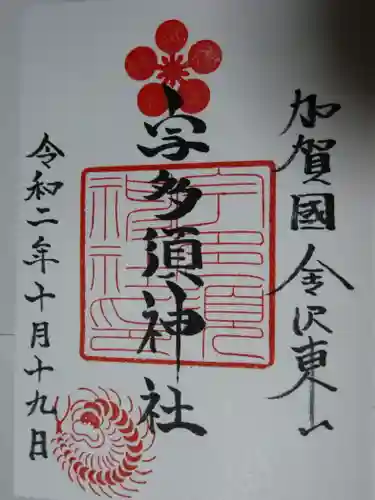 加賀國金沢東山
宇多須神社
令和二年十月十九日